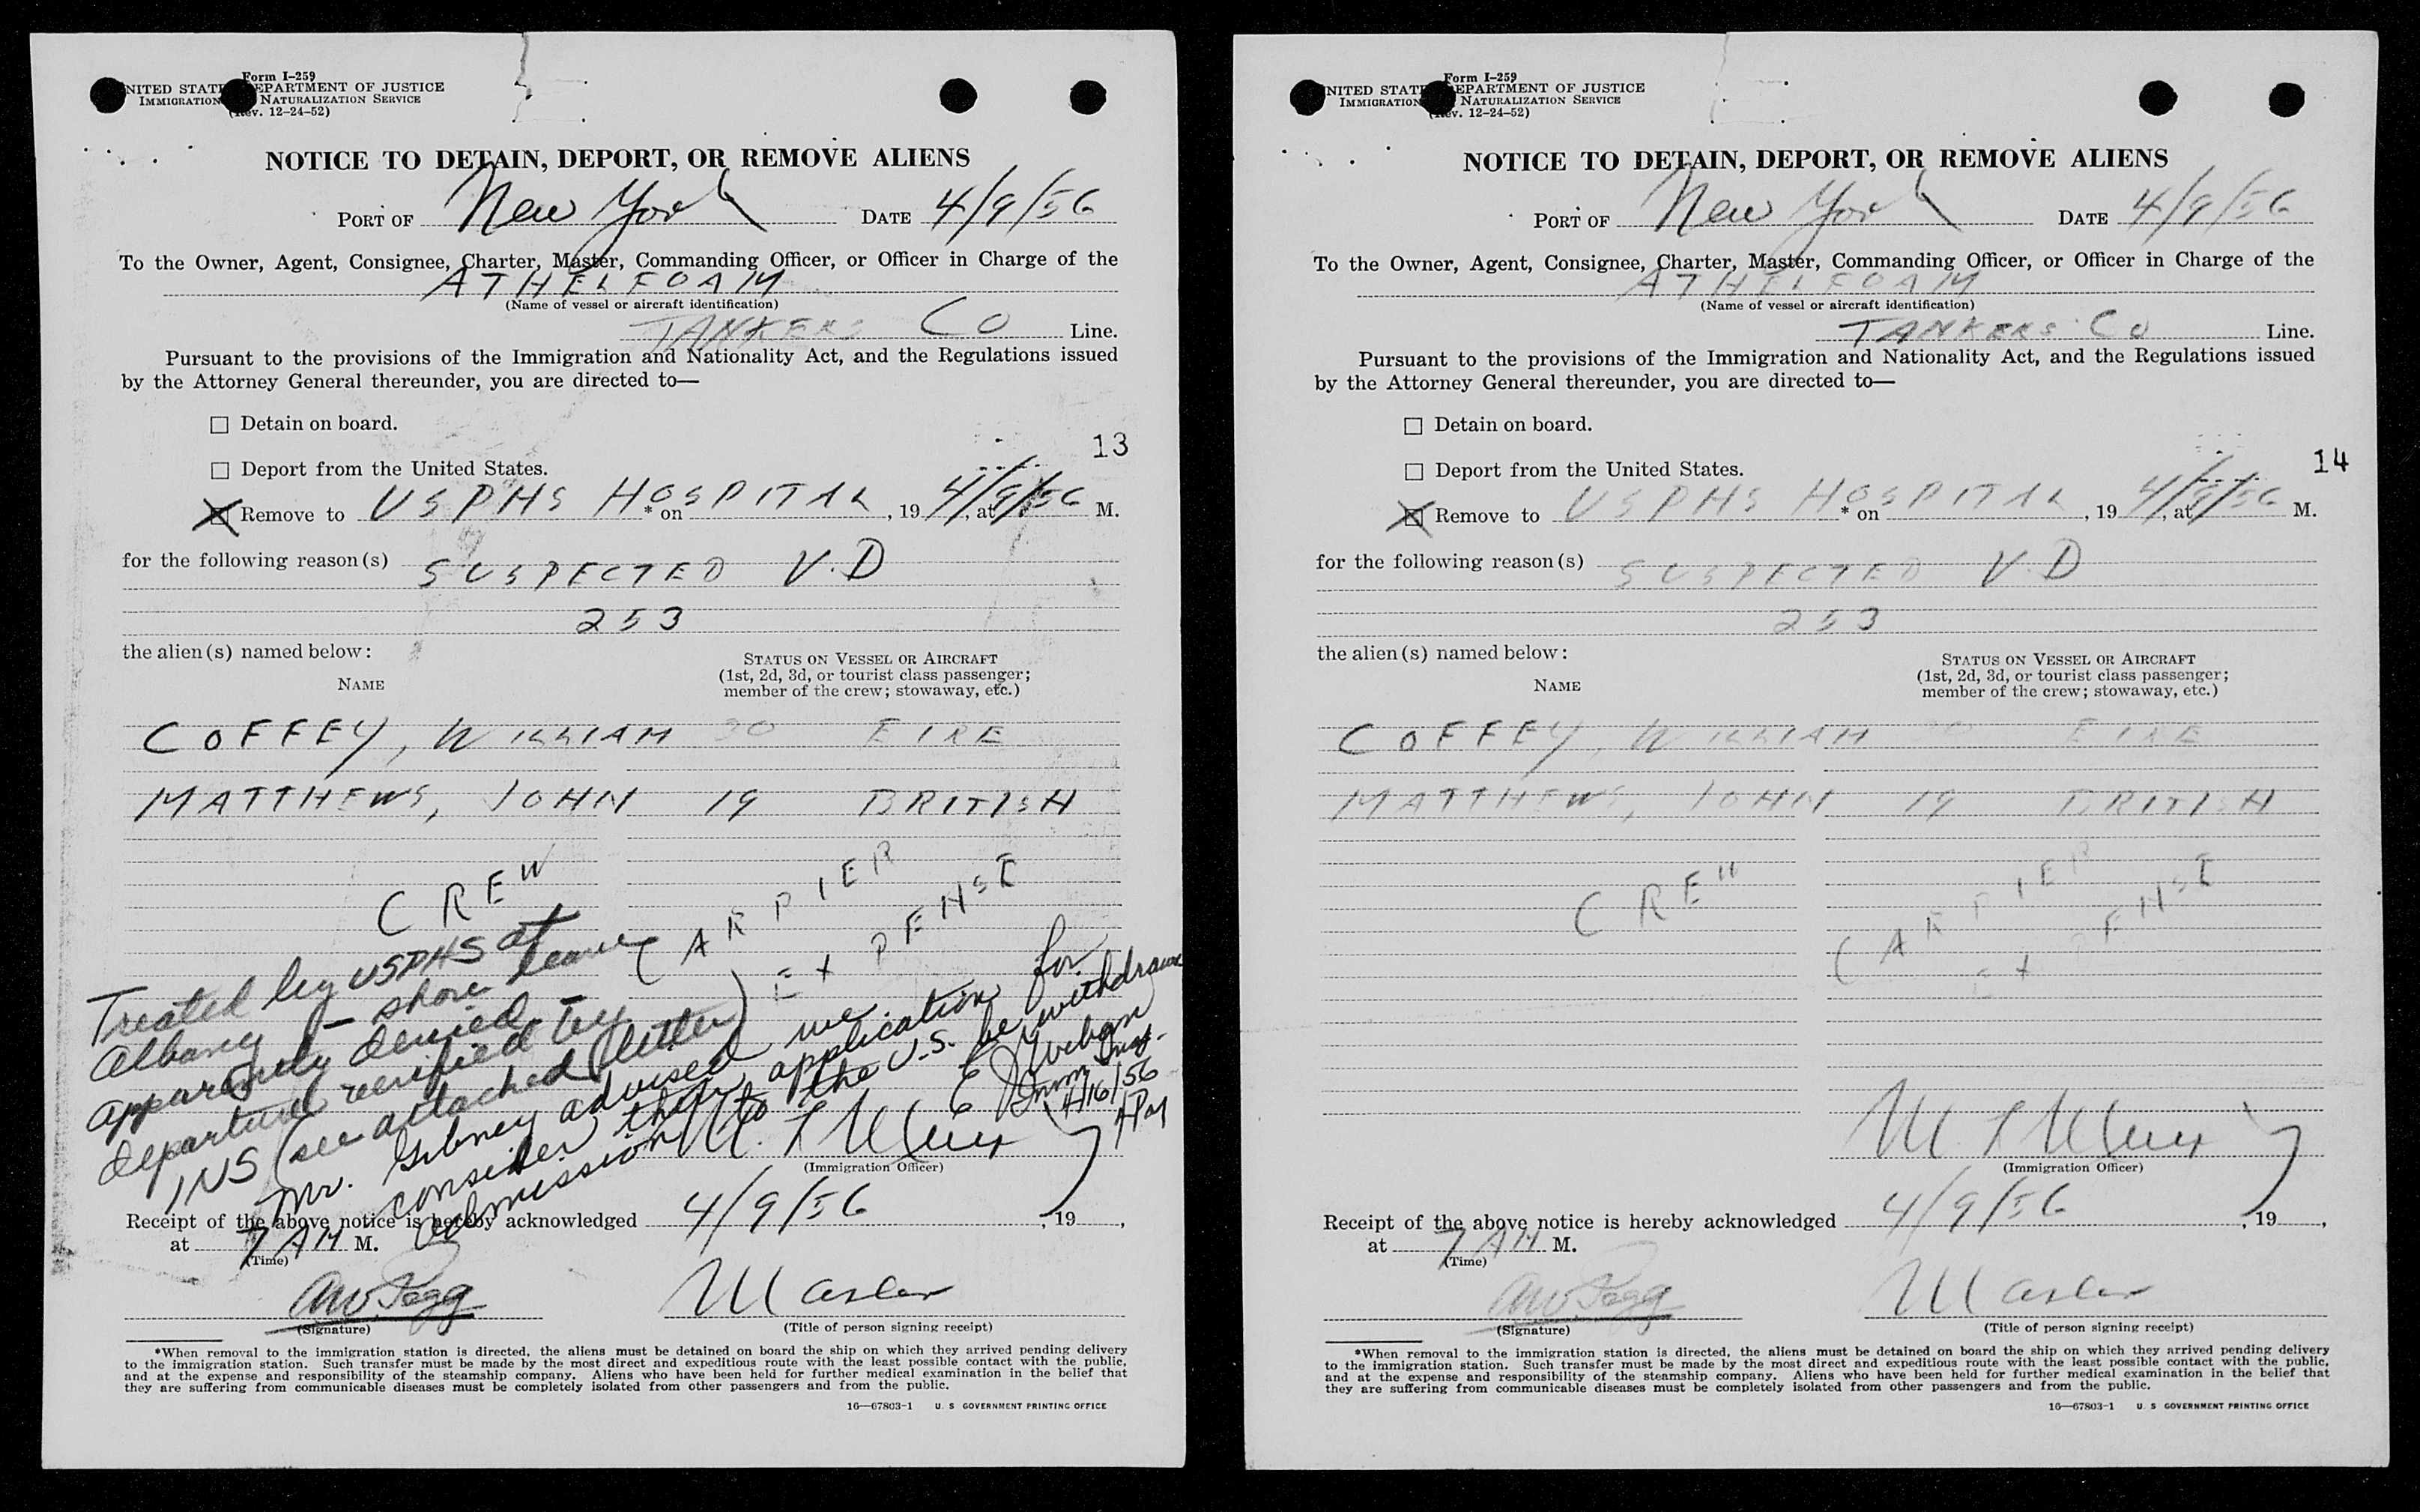 Form I-259
NITED STAT EPARTMENT OF JUSTICE
IMMIGRATION NATURALIZATION SERVICE
ev. 12-24-52)
NOTICE TO DETAIN, DEPORT, OR REMOVE ALIENS
PORT OF New York DATE 4/9/56
To the Owner, Agent, Consignee, Charter, Master, Commanding Officer, or Officer in Charge of the
ATHELFOAM
(Name of vessel or aircraft identification)
TANKERS CO Line.
Pursuant to the provisions of the Immigration and Nationality Act, and the Regulations issued
by the Attorney General thereunder, you are directed to—
☐ Detain on board.
13
☐ Deport from the United States.
☒ Remove to USPHS HOSPITAL * on , 19 4/9/56, at M.
for the following reason(s) SUSPECTED V.D
253
the alien(s) named below:
STATUS ON VESSEL OR AIRCRAFT
(1st, 2d, 3d, or tourist class passenger;
member of the crew; stowaway, etc.)
NAME
COFFEY, WILLIAM 30 EIRE
MATTHEWS, JOHN 19 BRITISH
CREW
CARRIER
EXPENSE
Treated by USPHS at
Albany — shore leave
apparently denied —
departure verified by
INS (see attached letter)
Mr. Gibney advised we
consider their application for
admission to the U.S. be withdrawn
Imm Insp.
4/16/56
4 PM
(Immigration Officer)
Receipt of the above notice is hereby acknowledged 4/9/56, 19 ,
at 7 AM M.
(Time)
Master
(Signature)
(Title of person signing receipt)
*When removal to the immigration station is directed, the aliens must be detained on board the ship on which they arrived pending delivery
to the immigration station. Such transfer must be made by the most direct and expeditious route with the least possible contact with the public,
and at the expense and responsibility of the steamship company. Aliens who have been held for further medical examination in the belief that
they are suffering from communicable diseases must be completely isolated from other passengers and from the public.
16—67803-1 U. S GOVERNMENT PRINTING OFFICE
Form I-259
NITED STAT EPARTMENT OF JUSTICE
IMMIGRATION NATURALIZATION SERVICE
ev. 12-24-52)
NOTICE TO DETAIN, DEPORT, OR REMOVE ALIENS
PORT OF New York DATE 4/9/56
To the Owner, Agent, Consignee, Charter, Master, Commanding Officer, or Officer in Charge of the
ATHELFOAM
(Name of vessel or aircraft identification)
TANKERS CO Line.
Pursuant to the provisions of the Immigration and Nationality Act, and the Regulations issued
by the Attorney General thereunder, you are directed to—
☐ Detain on board.
14
☐ Deport from the United States.
☒ Remove to USPHS HOSPITAL * on , 19 4/9/56, at M.
for the following reason(s) SUSPECTED V.D
253
the alien(s) named below:
STATUS ON VESSEL OR AIRCRAFT
(1st, 2d, 3d, or tourist class passenger;
member of the crew; stowaway, etc.)
NAME
COFFEY, WILLIAM 30 EIRE
MATTHEWS, JOHN 19 BRITISH
CREW
CARRIER
EXPENSE
(Immigration Officer)
Receipt of the above notice is hereby acknowledged 4/9/56, 19 ,
at 7 AM M.
(Time)
Master
(Signature)
(Title of person signing receipt)
*When removal to the immigration station is directed, the aliens must be detained on board the ship on which they arrived pending delivery
to the immigration station. Such transfer must be made by the most direct and expeditious route with the least possible contact with the public,
and at the expense and responsibility of the steamship company. Aliens who have been held for further medical examination in the belief that
they are suffering from communicable diseases must be completely isolated from other passengers and from the public.
16—67803-1 U. S GOVERNMENT PRINTING OFFICE